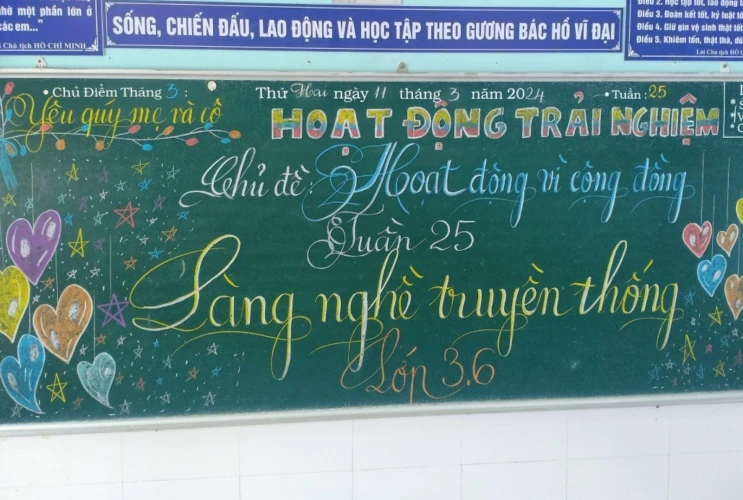 một phần lớn ở
các em..."
Chủ tịch HỒ CHÍ MINH
SỐNG, CHIẾN ĐẤU, LAO ĐỘNG VÀ HỌC TẬP THEO GƯƠNG BÁC HỒ VĨ ĐẠI
Điều 2. Học tập tốt, lao động
Điều 3. Đoàn kết tốt, kỷ luật tốt
Điều 4. Giữ gìn vệ sinh thật tốt
Điều 5. Khiêm tốn, thật thà, dũ
Lời Chủ tịch HỒ
• Chủ Điểm Tháng 3 :
Yêu quý mẹ và cô
Thứ Hai ngày 11 tháng 3 năm 2024
• Tuần : 25
HOẠT ĐỘNG TRẢI NGHIỆM
Chủ đề: Hoạt động vì cộng đồng
Tuần 25
Làng nghề truyền thống
Lớp 3.6